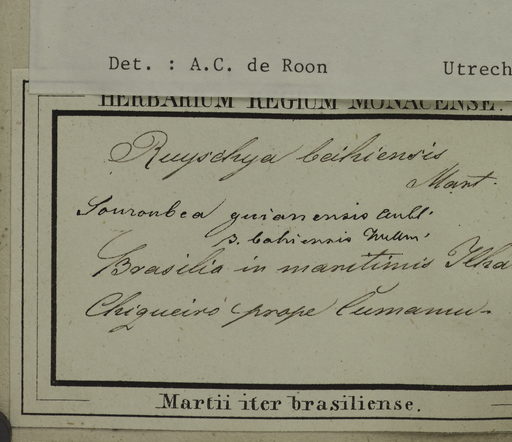 Det. : A.C. de Roon Utrech
HERBARIUM REGIUM MONACENSE.
Ruyschya bahiensis
Mart.
Souroubea guianensis Aubl.
β. bahiensis
Brasilia in maritimis Ilha
Chiqueiró prope Cumamu.
Martii iter brasiliense.